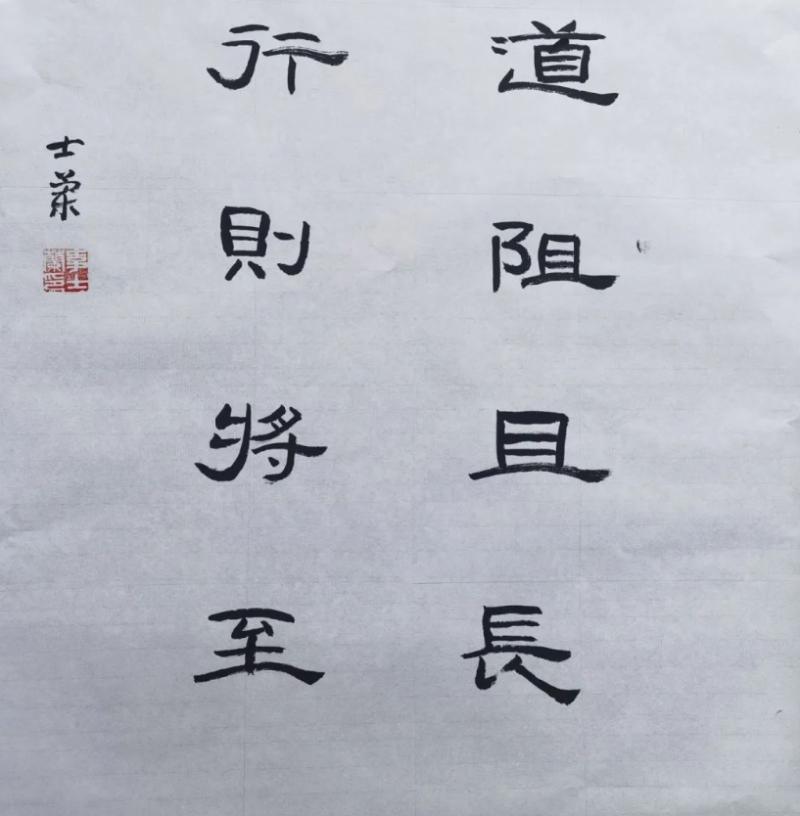 道阻且長
行則將至
士榮